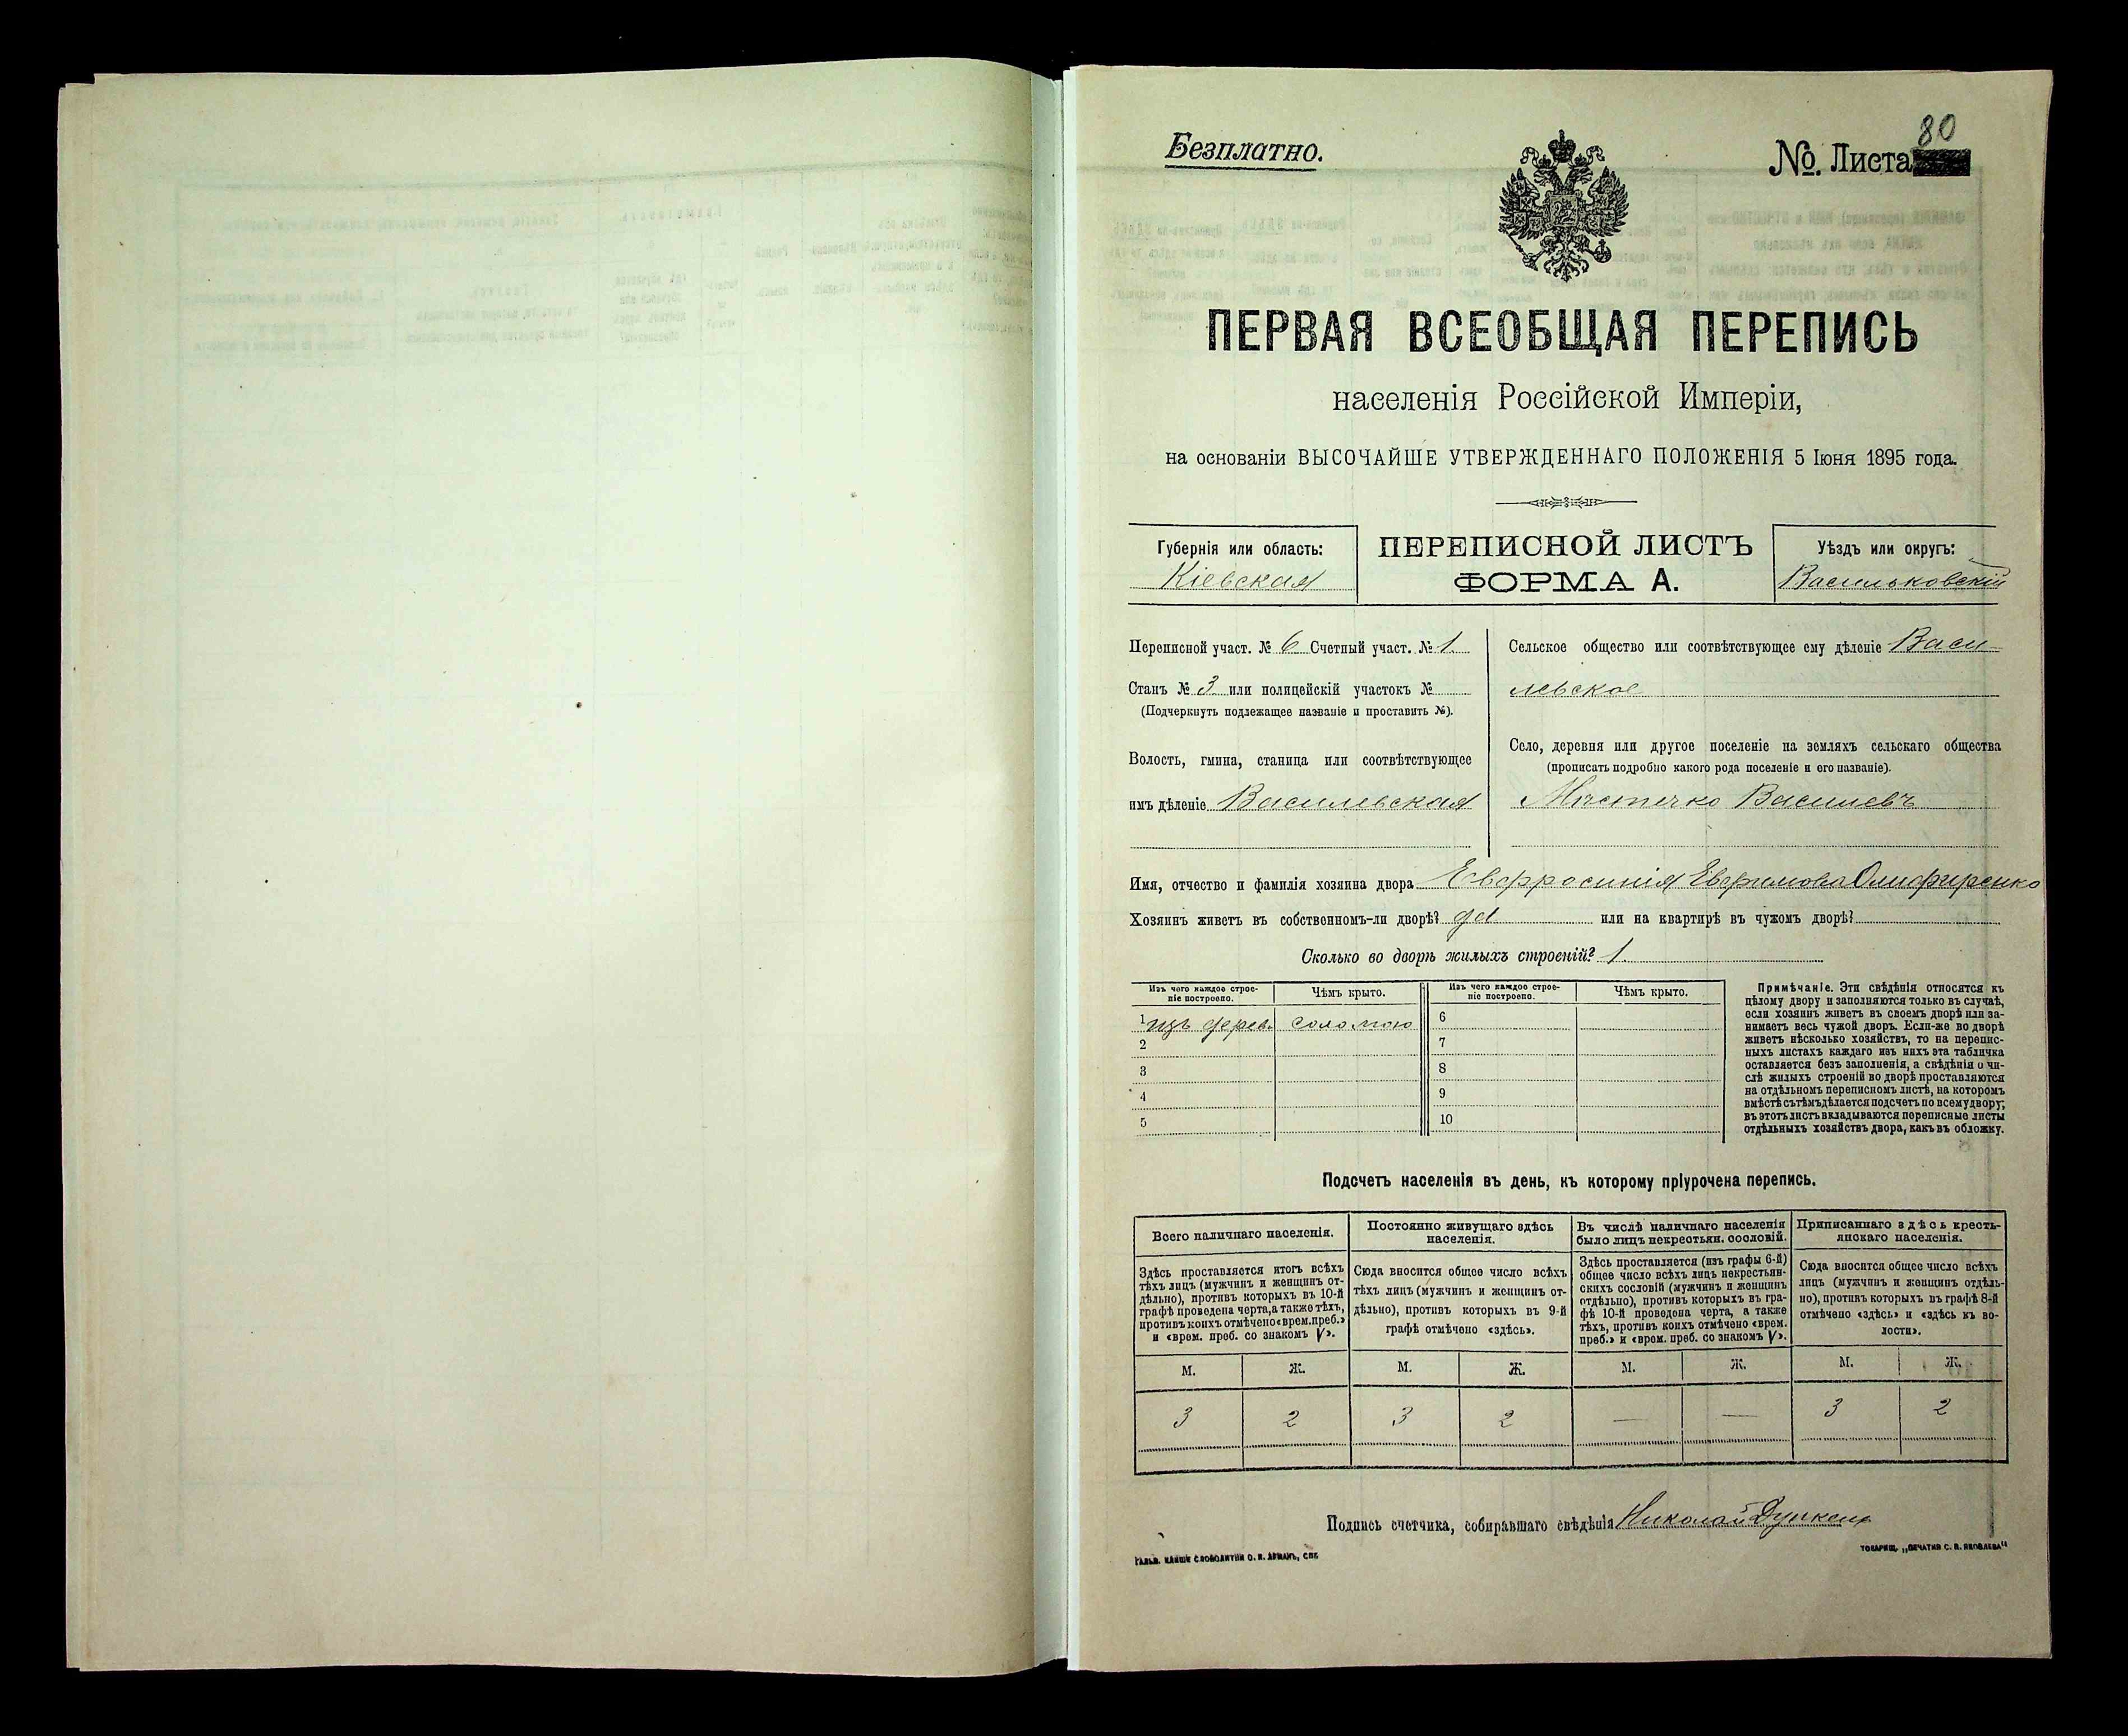 Безплатно.
№. Листа 80
ПЕРВАЯ ВСЕОБЩАЯ ПЕРЕПИСЬ
населенія Россійской Имперіи,
на основаніи ВЫСОЧАЙШЕ УТВЕРЖДЕННАГО ПОЛОЖЕНІЯ 5 Іюня 1895 года.
Губернія или область:
Кіевская
ПЕРЕПИСНОЙ ЛИСТЪ
ФОРМА А.
Уѣздъ или округъ:
Васильковскій
Переписной участ. № 6 Счетный участ. № 1
Станъ № 3 или полицейскій участокъ №
(Подчеркнуть подлежащее названіе и проставить №).
Волость, гмина, станица или соотвѣтствующее
имъ дѣленіе Василевская
Сельское общество или соотвѣтствующее ему дѣленіе Васи-
левское
Село, деревня или другое поселеніе на земляхъ сельскаго общества
(прописать подробно какого рода поселеніе и его названіе).
Мѣстечко Василевъ
Имя, отчество и фамилія хозяина двора Евфросинія Евфимова Олифиренко
Хозяинъ живетъ въ собственномъ-ли дворѣ? да или на квартирѣ въ чужомъ дворѣ?
Сколько во дворѣ жилыхъ строеній? 1
Изъ чего каждое строе-
ніе построено.
Чѣмъ крыто.
Изъ чего каждое строе-
ніе построено.
Чѣмъ крыто.
1 изъ дерев. соломою 6
2 7
3 8
4 9
5 10
Примѣчаніе. Эти свѣдѣнія относятся къ
цѣлому двору и заполняются только въ случаѣ,
если хозяинъ живетъ въ своемъ дворѣ или за-
нимаетъ весь чужой дворъ. Если-же во дворѣ
живетъ нѣсколько хозяйствъ, то на перепис-
ныхъ листахъ каждаго изъ нихъ эта табличка
оставляется безъ заполненія, а свѣдѣнія о чи-
слѣ жилыхъ строеній во дворѣ проставляются
на отдѣльномъ переписномъ листѣ, на которомъ
вмѣстѣ съ тѣмъ дѣлается подсчетъ по всему двору;
въ этотъ листъ вкладываются переписные листы
отдѣльныхъ хозяйствъ двора, какъ въ обложку.
Подсчетъ населенія въ день, къ которому пріурочена перепись.
Всего наличнаго населенія.
Здѣсь проставляется итогъ всѣхъ
тѣхъ лицъ (мужчинъ и женщинъ от-
дѣльно), противъ которыхъ въ 10-й
графѣ проведена черта, а также тѣхъ,
противъ коихъ отмѣчено «врем. преб.»
и «врем. преб. со знакомъ V».
Постоянно живущаго здѣсь
населенія.
Сюда вносится общее число всѣхъ
тѣхъ лицъ (мужчинъ и женщинъ от-
дѣльно), противъ которыхъ въ 9-й
графѣ отмѣчено «здѣсь».
Въ числѣ наличнаго населенія
было лицъ некрестьян. сословій.
Здѣсь проставляется (изъ графы 6-й)
общее число всѣхъ лицъ некрестьян-
скихъ сословій (мужчинъ и женщинъ
отдѣльно), противъ которыхъ въ гра-
фѣ 10-й проведена черта, а также
тѣхъ, противъ коихъ отмѣчено «врем.
преб.» и «врем. преб. со знакомъ V».
Приписаннаго здѣсь кресть-
янскаго населенія.
Сюда вносится общее число всѣхъ
лицъ (мужчинъ и женщинъ отдѣль-
но), противъ которыхъ въ графѣ 8-й
отмѣчено «здѣсь» и «здѣсь къ во-
лости».
М. Ж. М. Ж. М. Ж. М. Ж.
3 2 3 2 — — 3 2
Подпись счетчика, собиравшаго свѣдѣнія Николай
ТОВАРИЩ. „ПЕЧАТНЯ С. П. ЯКОВЛЕВА"